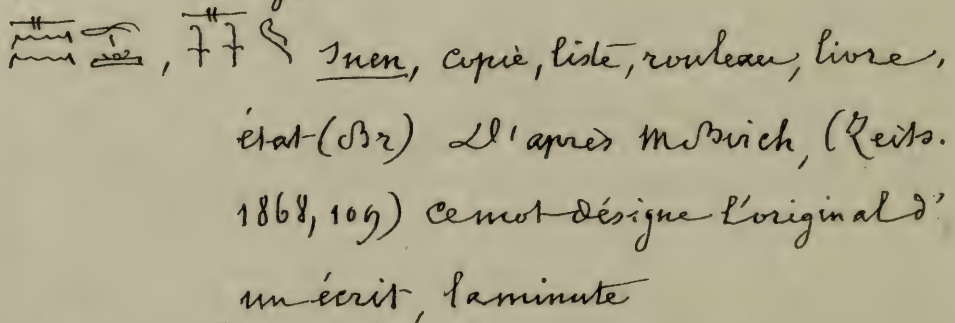 Snen, copie, liste, rouleau, livre,
état (Br) D'après M Birch, (Zeits.
1868, 109) ce mot désigne l'original d'
un écrit, la minute